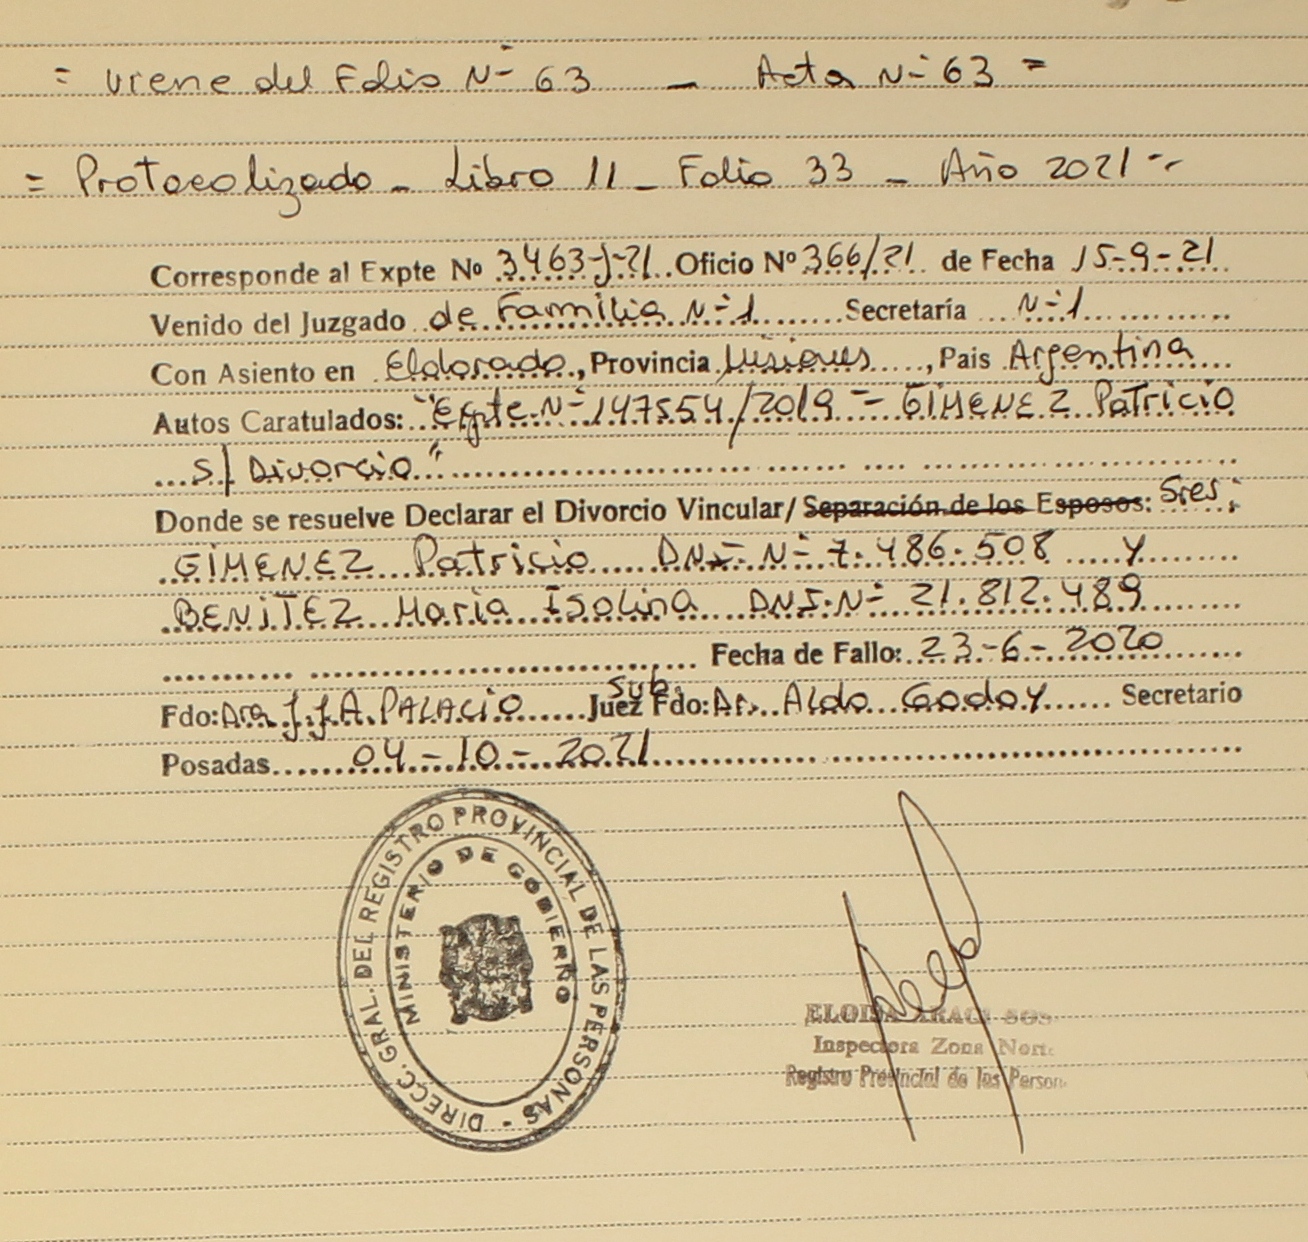 = Viene del Folio N° 63 _ Acta N° 63 =
= Protocolizado _ Libro 11 _ Folio 33 _ Año 2021 --
Corresponde al Expte Nº 3463-J-21 Oficio Nº 366/21 de Fecha 15-9-21
Venido del Juzgado de Familia N° 1 Secretaría N° 1
Con Asiento en Eldorado, Provincia Misiones, Pais Argentina
Autos Caratulados: "Expte. N° 147554/2019 - GIMENEZ Patricio
s/ Divorcio"
Donde se resuelve Declarar el Divorcio Vincular/ Separación de los Esposos: Sres:
GIMENEZ Patricio DNI N° 7.486.508 y
BENITEZ Maria Isolina DNI. N° 21.812.489
Fecha de Fallo: 23-6-2020
Fdo: Dra J.J.A. PALACIO Juez Sub. Fdo: Dr. Aldo Godoy Secretario
Posadas 04-10-2021
DIRECC. GRAL. DEL REGISTRO PROVINCIAL DE LAS PERSONAS -
MINISTERIO DE GOBIERNO
ELOISA
Inspectora Zona
Registro Provincial de las